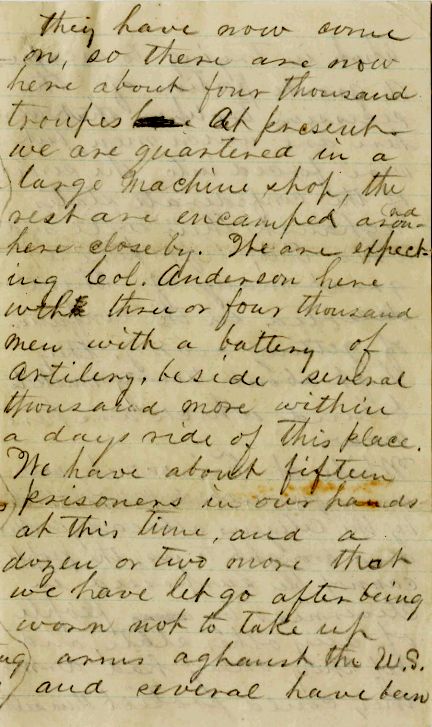 they have now come
on, so there are now
here about four thousand
troupes at present
we are quartered in a
large machine shop, the
rest are encamped around
here close by. We are expect-
ing Col. Anderson here
with three or four thousand
men with a battery of
Artilery, beside several
thousand more within
a days ride of this place.
We have about fifteen
prisoners in our hands
at this time, and a
dozen or two more that
we have let go after being
sworn not to take up
arms aghaust the U.S.
and several have been